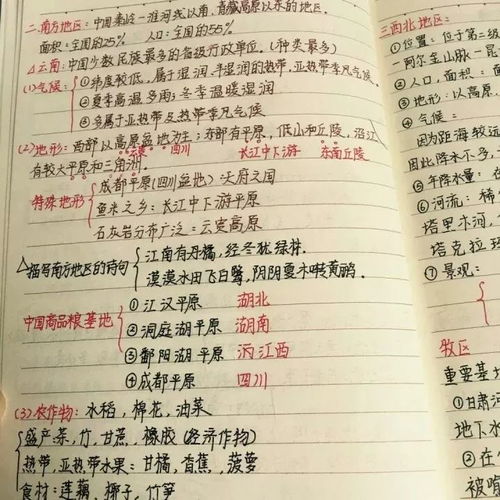 二.南方地区:中国秦岭—淮河线以南,青藏高原以东的地区.
面积:全国的25% 人口:全国的55%
△云南:中国少数民族最多的省级行政单位.(种类最多)
(1)气候:
①纬度较低,属于湿润、半湿润的热带,亚热带季风气候
②夏季高温多雨;冬季温暖湿润
③多属于亚热带及热带季风气候
(2)地形:西部以高原盆地为主;东部有平原,低山和丘陵,沿江
四川 长江中下游 东南丘陵
有较大平原和三角洲.
特殊地形
成都平原(四川盆地):天府之国
鱼米之乡:长江中下游平原
石灰岩分布广泛:云贵高原
△描写南方地区的诗句
江南有丹橘,经冬犹绿林.
漠漠水田飞白鹭,阴阴夏木啭黄鹂.
中国商品粮基地
①江汉平原 湖北
②洞庭湖平原 湖南
③鄱阳湖平原 江西
④成都平原 四川
(3)农作物:水稻,棉花,油菜
盛产茶,竹,甘蔗,橡胶(经济作物)
热带,亚热带水果:甘橘,香蕉,菠萝
食材:莲藕,椰子,竹笋
三西北地区:
①位置:位于第二级
—阿尔金山脉—昆
②人口,面积:面
③地形:以高原,
④气候:
因为距海较远
因此降水不多,
⑤年降水量:在
⑥河流:稀
塔里木河,
塔克拉玛
⑦景观:
牧区
重要基地
①甘肃河
地下水
②在
被誉